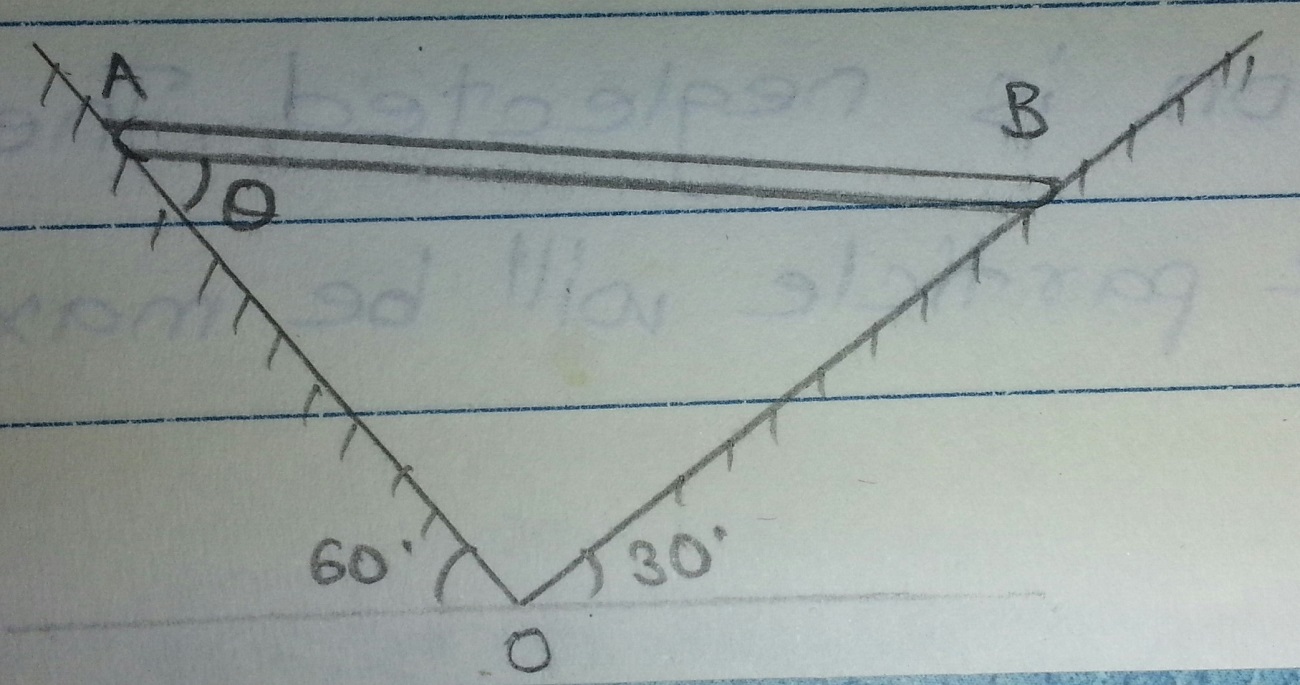 A
B
θ
60°
30°
O